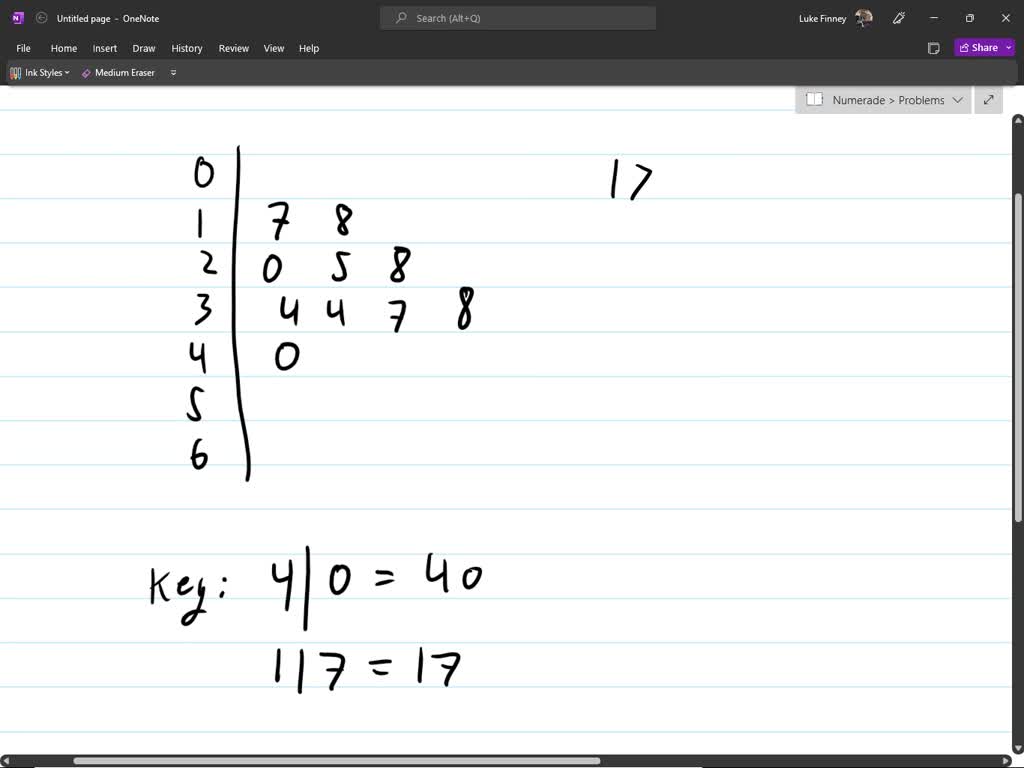 Untitled page - OneNote
Search (Alt+Q)
Luke Finney
File Home Insert Draw History Review View Help
Share
Ink Styles
Medium Eraser
Numerade > Problems
0
17
1 | 7 8
2 | 0 5 8
3 | 4 4 7 8
4 | 0
5
6
Key: 4 | 0 = 40
1 | 7 = 17